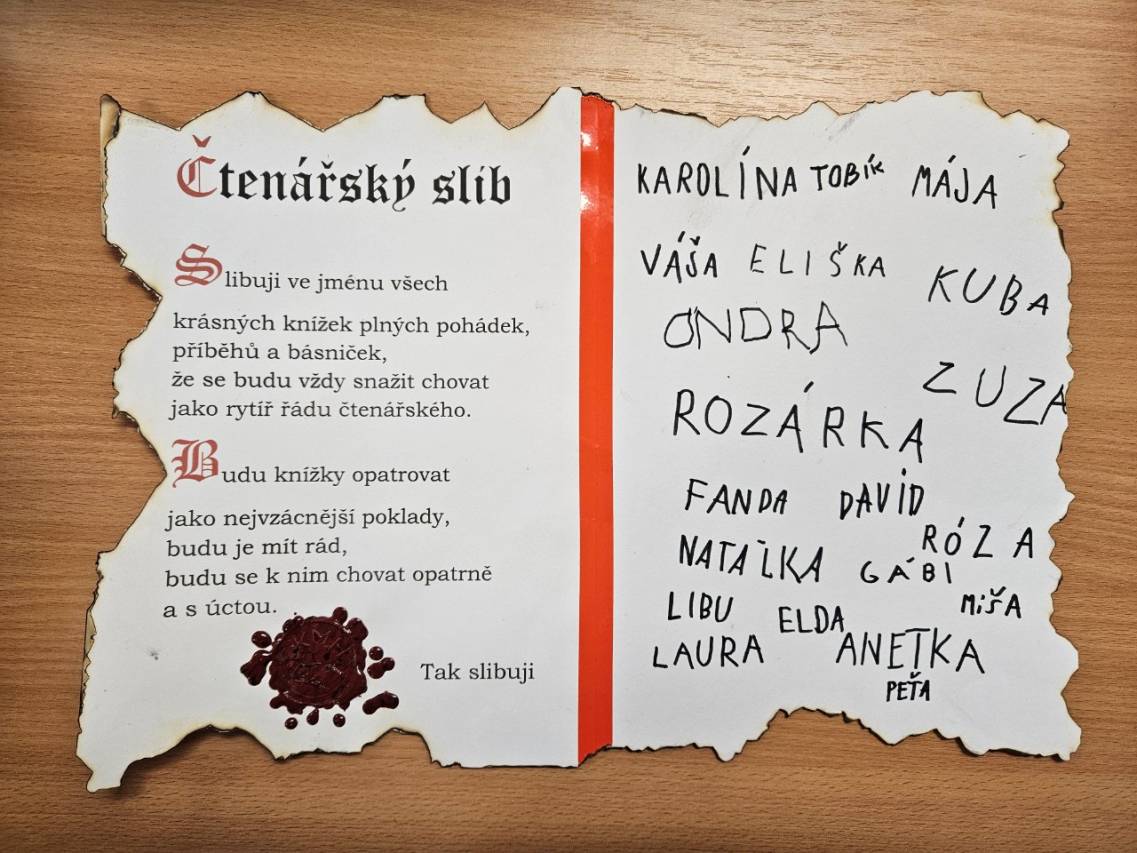 Čtenářský slib
Slibuji ve jménu všech
krásných knížek plných pohádek,
příběhů a básniček,
že se budu vždy snažit chovat
jako rytíř řádu čtenářského.
Budu knížky opatrovat
jako nejvzácnější poklady,
budu je mít rád,
budu se k nim chovat opatrně
a s úctou.
Tak slibuji
KAROLÍNA TOBÍK MÁJA
VÁŠA ELIŠKA KUBA
ONDRA
ZUZA
ROZÁRKA
FANDA DAVID
RÓZA
NATALKA GÁBI
LIBU ELDA MIŠA
LAURA ANETKA
PEŤA